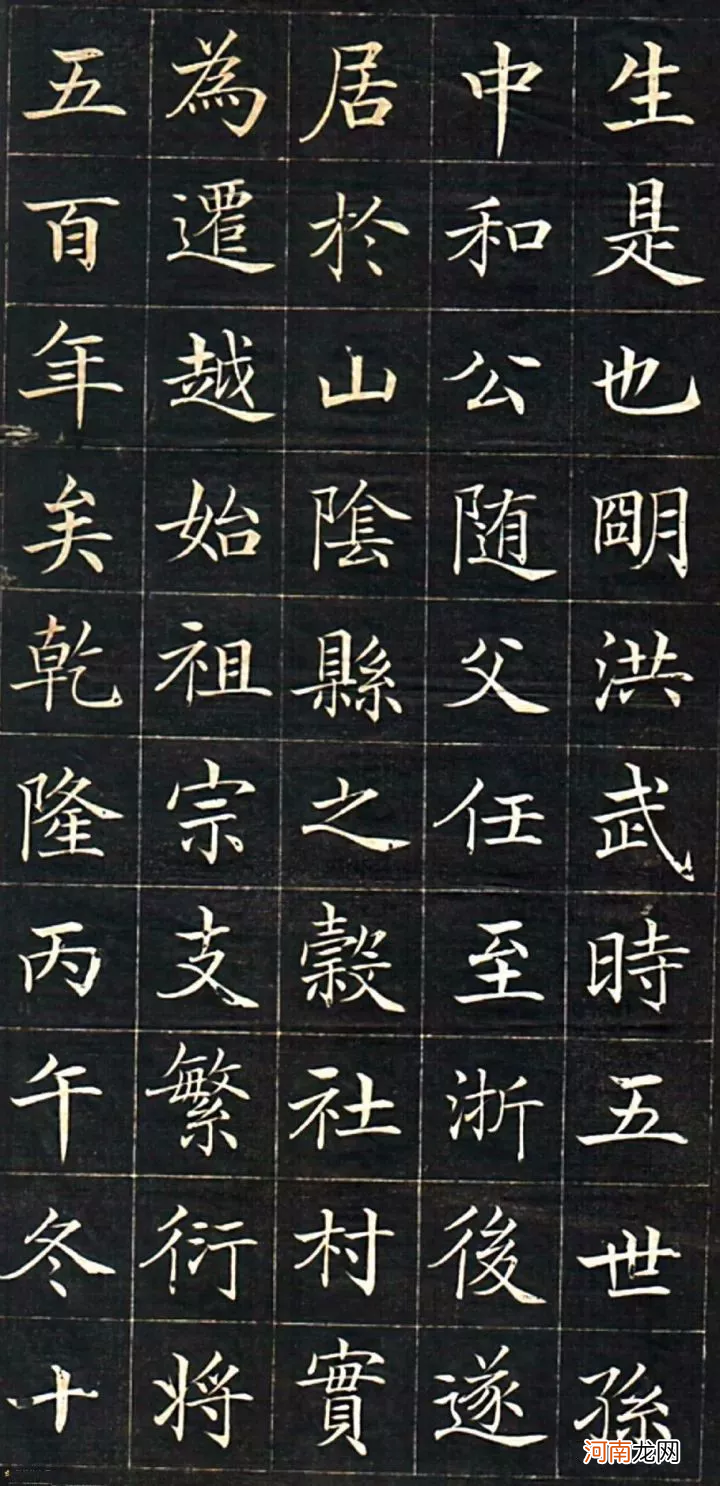 生是也朙洪武時五世孫
中和公随父任至浙後遂
居於山陰縣之穀社村實
為遷越始祖宗支繁衍将
五百年矣乾隆丙午冬十
河南龙网